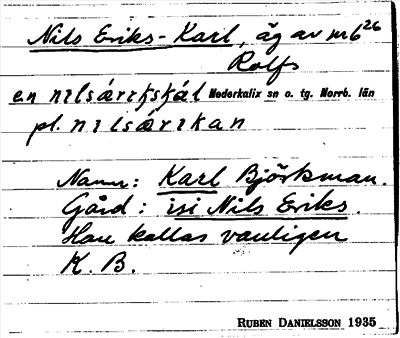 Nils Eriks-Karl, äg av nr 6²⁶
Rolfs
en nilsárikskál Nederkalix sn o. tg. Norrb. län
pl. nilsárikan
Namn: Karl Björkman.
Gård: isi Nils Eriks.
Han kallas vanligen
K. B.
RUBEN DANIELSSON 1935